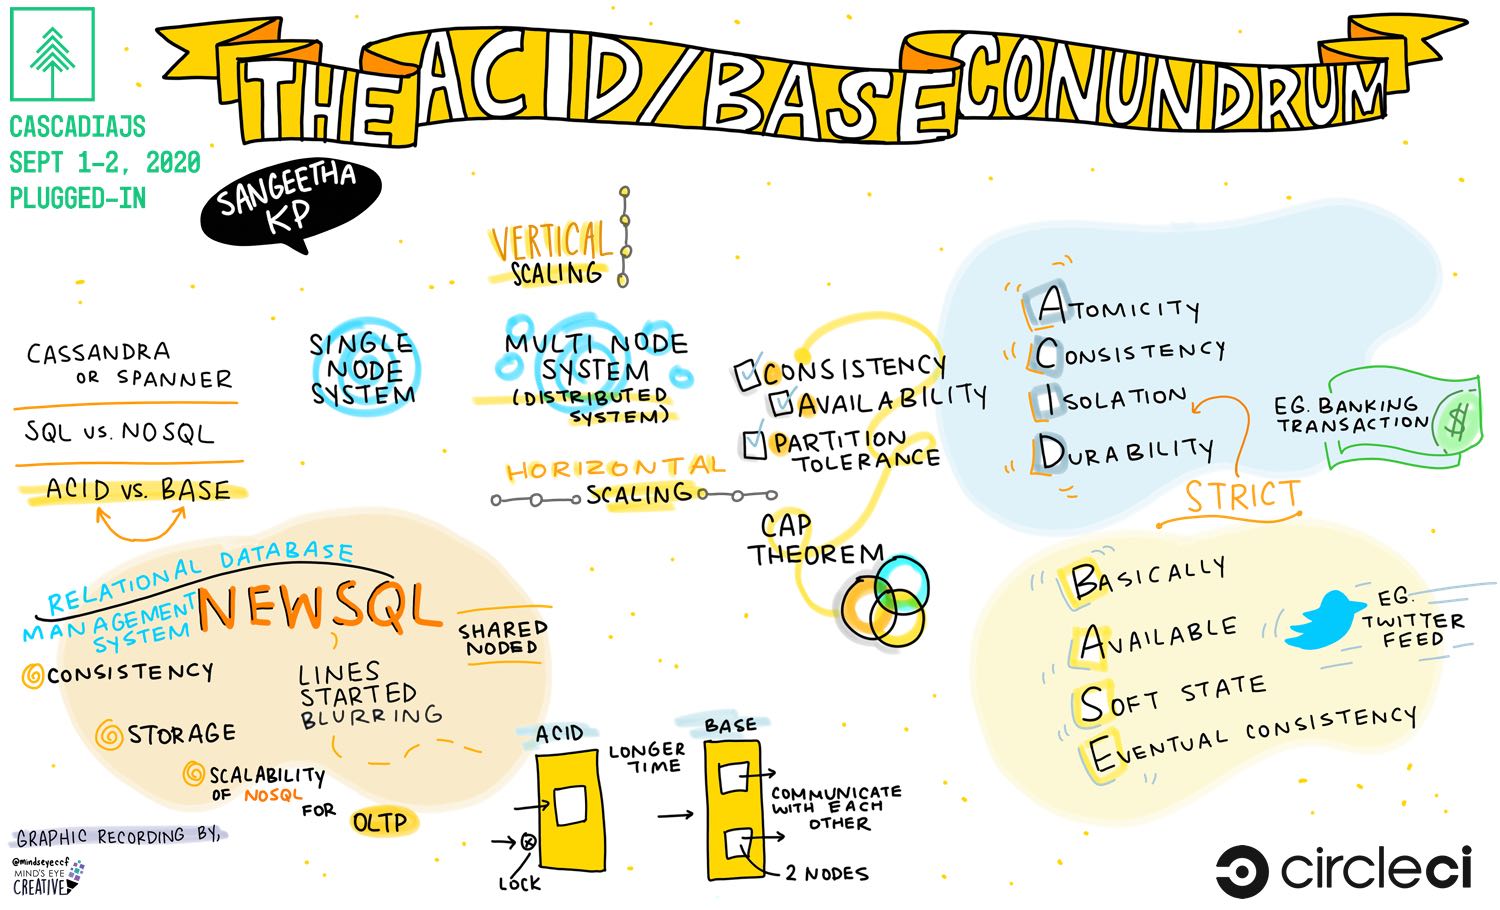 THE ACID/BASE CONUNDRUM
CASCADIAJS
SEPT 1-2, 2020
PLUGGED-IN
SANGEETHA
KP
VERTICAL
SCALING
CASSANDRA
OR SPANNER
SQL VS. NOSQL
ACID VS. BASE
SINGLE
NODE
SYSTEM
MULTI NODE
SYSTEM
(DISTRIBUTED
SYSTEM)
HORIZONTAL
SCALING
CONSISTENCY
AVAILABILITY
PARTITION
TOLERANCE
CAP
THEOREM
ATOMICITY
CONSISTENCY
ISOLATION
DURABILITY
STRICT
EG. BANKING
TRANSACTION
$
BASICALLY
AVAILABLE
SOFT STATE
EVENTUAL CONSISTENCY
EG.
TWITTER
FEED
RELATIONAL DATABASE
MANAGEMENT
SYSTEM
NEWSQL
SHARED
NODED
CONSISTENCY
STORAGE
SCALABILITY
OF NOSQL
FOR
OLTP
LINES
STARTED
BLURRING
ACID
LOCK
LONGER
TIME
BASE
COMMUNICATE
WITH EACH
OTHER
2 NODES
GRAPHIC RECORDING BY,
@mindseyeccf
MIND'S EYE
CREATIVE
circleci